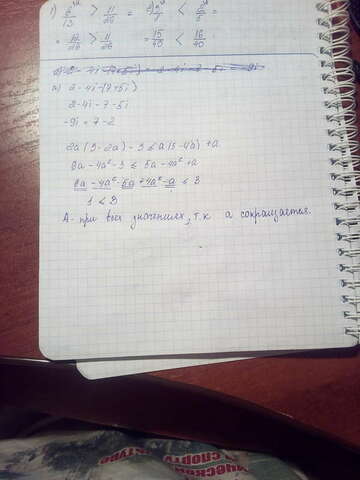 1) 6/13 > 11/26 = 2) 3/8 < 2/5 =
= 12/26 > 11/26 = 15/40 < 16/40
а) 2 - 4i - (7+5i)
2 - 4i - 7 - 5i
-9i = 7 - 2
2a (3 - 2a) - 3 ≤ a (5 - 4a) + a
6a - 4a² - 3 ≤ 5a - 4a² + a
6a - 4a² - 5a + 4a² - a ≤ 3
A - при всех значениях, т.к а сокращается.